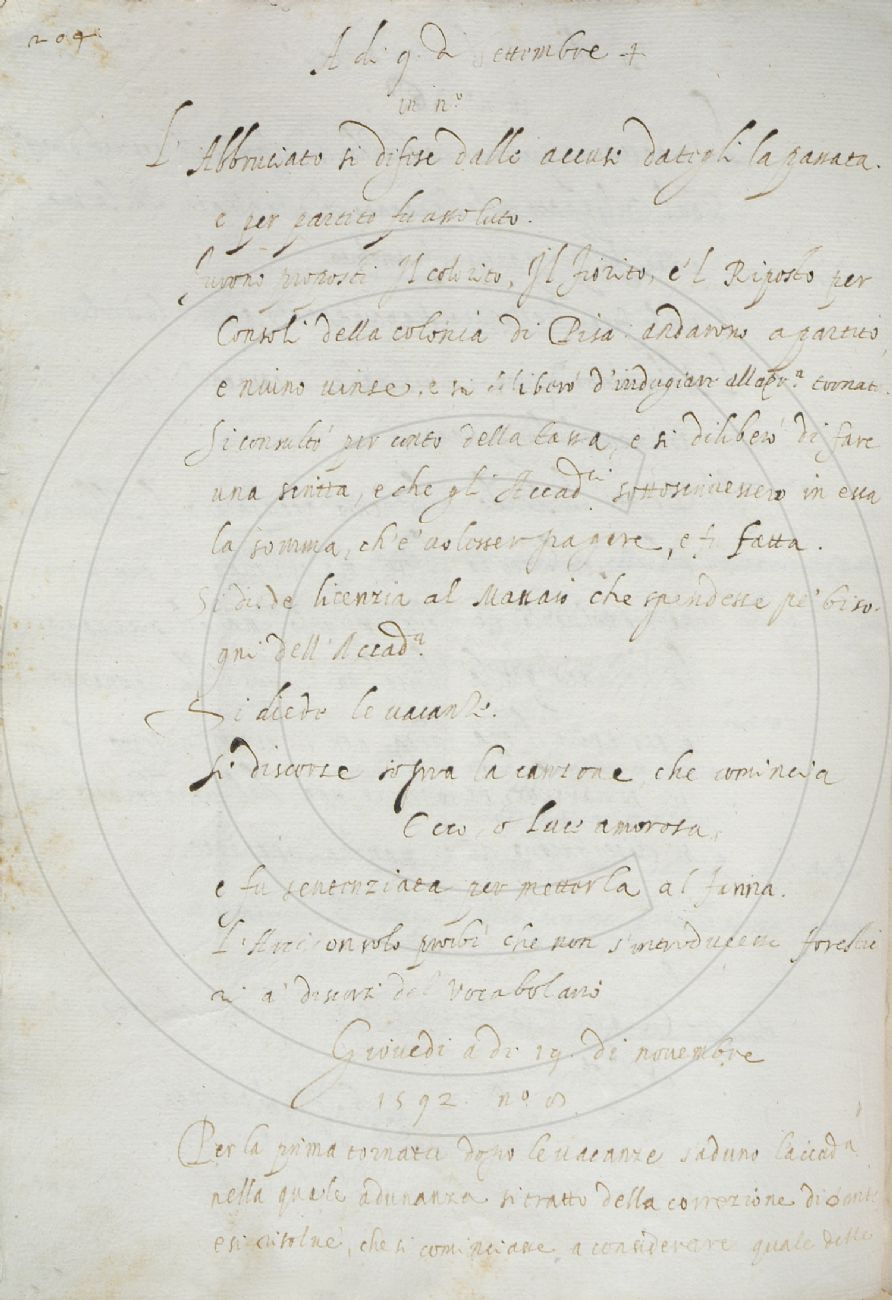 204
A di 9. di settembre +
in n.º
L' Abbruciato si difese dalle accuse dategli la passata.
e per partito fu assoluto.
Furono proposti Il colorito, Il fiorito, e 'l Riposto per
Consoli della colonia di Pisa: andarono a partito,
e niuno vinse, e si diliberò d'indugiare alla tornata.
Si consultò per conto della tassa, e si diliberò di fare
una scritta, e che gli Accad.ci sottoscrivessero in essa
la somma, ch'e' volesser pagare, e fu fatta.
Si diede licenzia al Massaio che spendesse pe' biso-
gni dell'Accad.a
Si diede le vacanze.
Si discorse sopra la canzone, che comincia
Ecco, o luce amorosa,
e fu sentenziata per metterla al fanna.
L'Arciconsolo proibì che non s'introducesse foresti
ri a' discorsi del Vocabolario
Giovedi a di 19. di novembre
1592. n.º 8.
Per la prima tornata dopo le vacanze s'aduno l'accad.a
nella quale adunanza si tratto della correzione di Dante
e si risolue, che si cominciasse a considerare quale delle